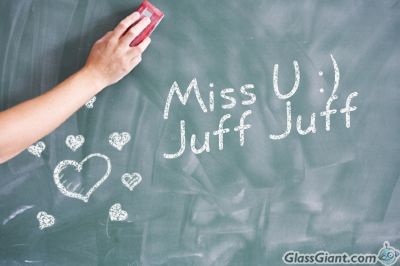 Miss U :)
Juff Juff
GlassGiant.com